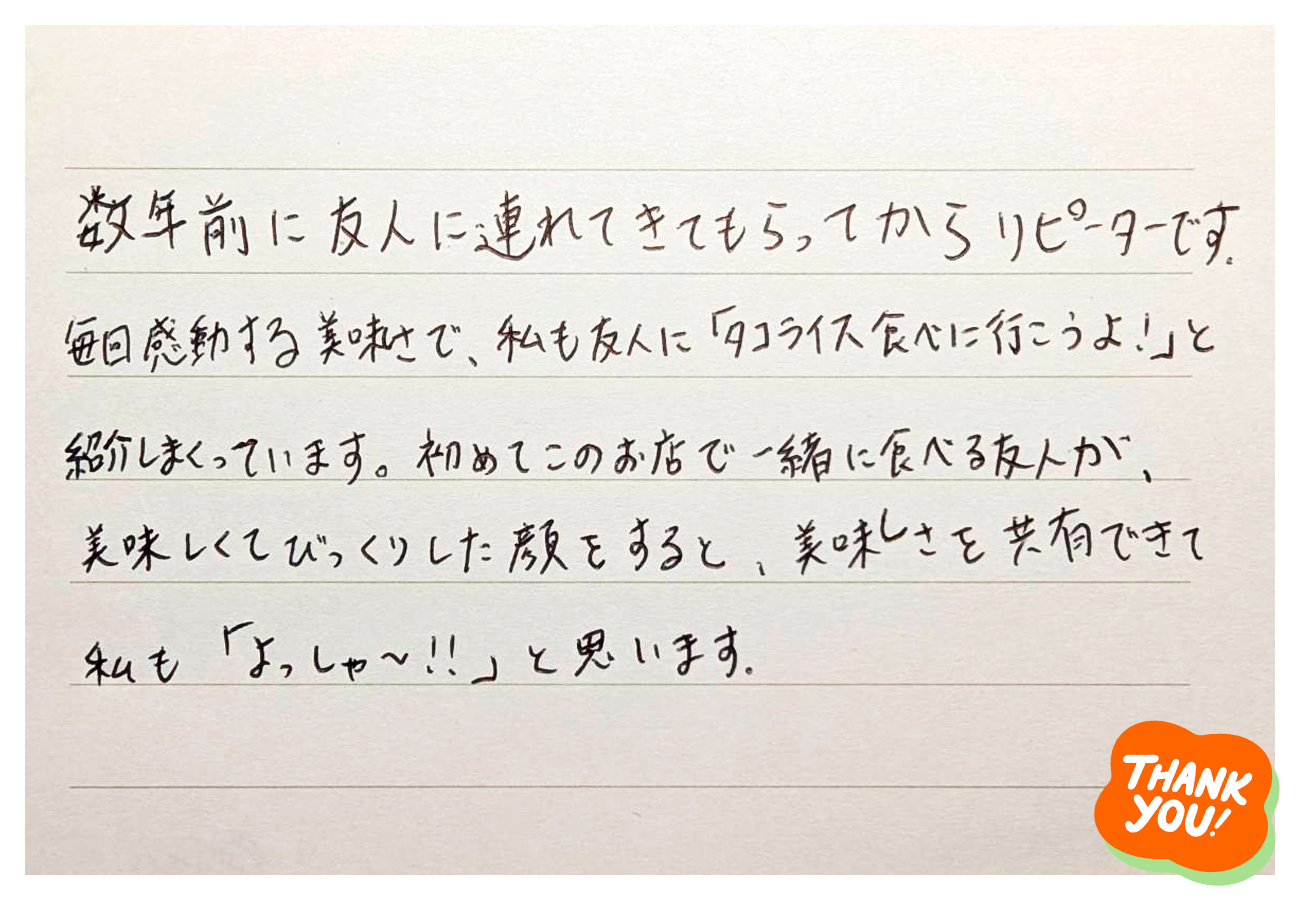 数年前に友人に連れてきてもらってからリピーターです。
毎回感動する美味さで、私も友人に「タコライス食べに行こうよ!」と
紹介しまくっています。初めてこのお店で一緒に食べる友人が、
美味しくてびっくりした顔をすると、美味しさを共有できて
私も「よっしゃ〜!!」と思います。
THANK
YOU!